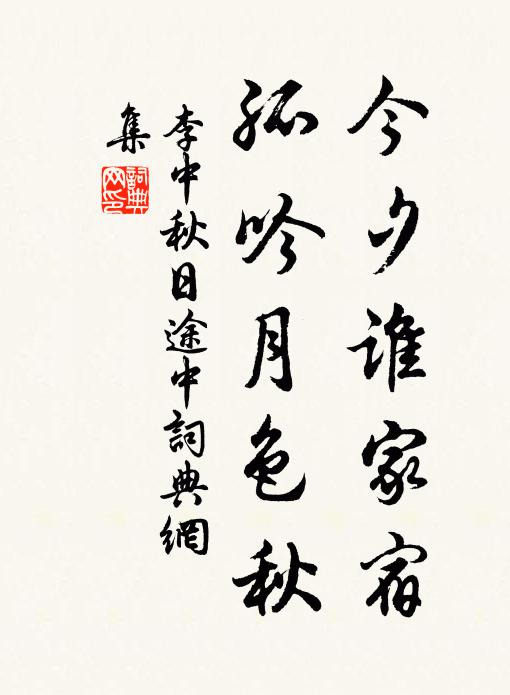 今夕誰家宿
孤吟月色秋
李中秋日途中詞典網
集
詞典
网印